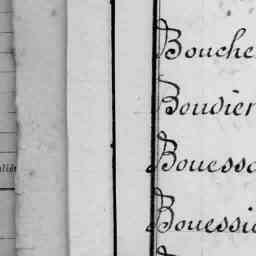 Bouche
Bouvier
Bouesso
Bouessi